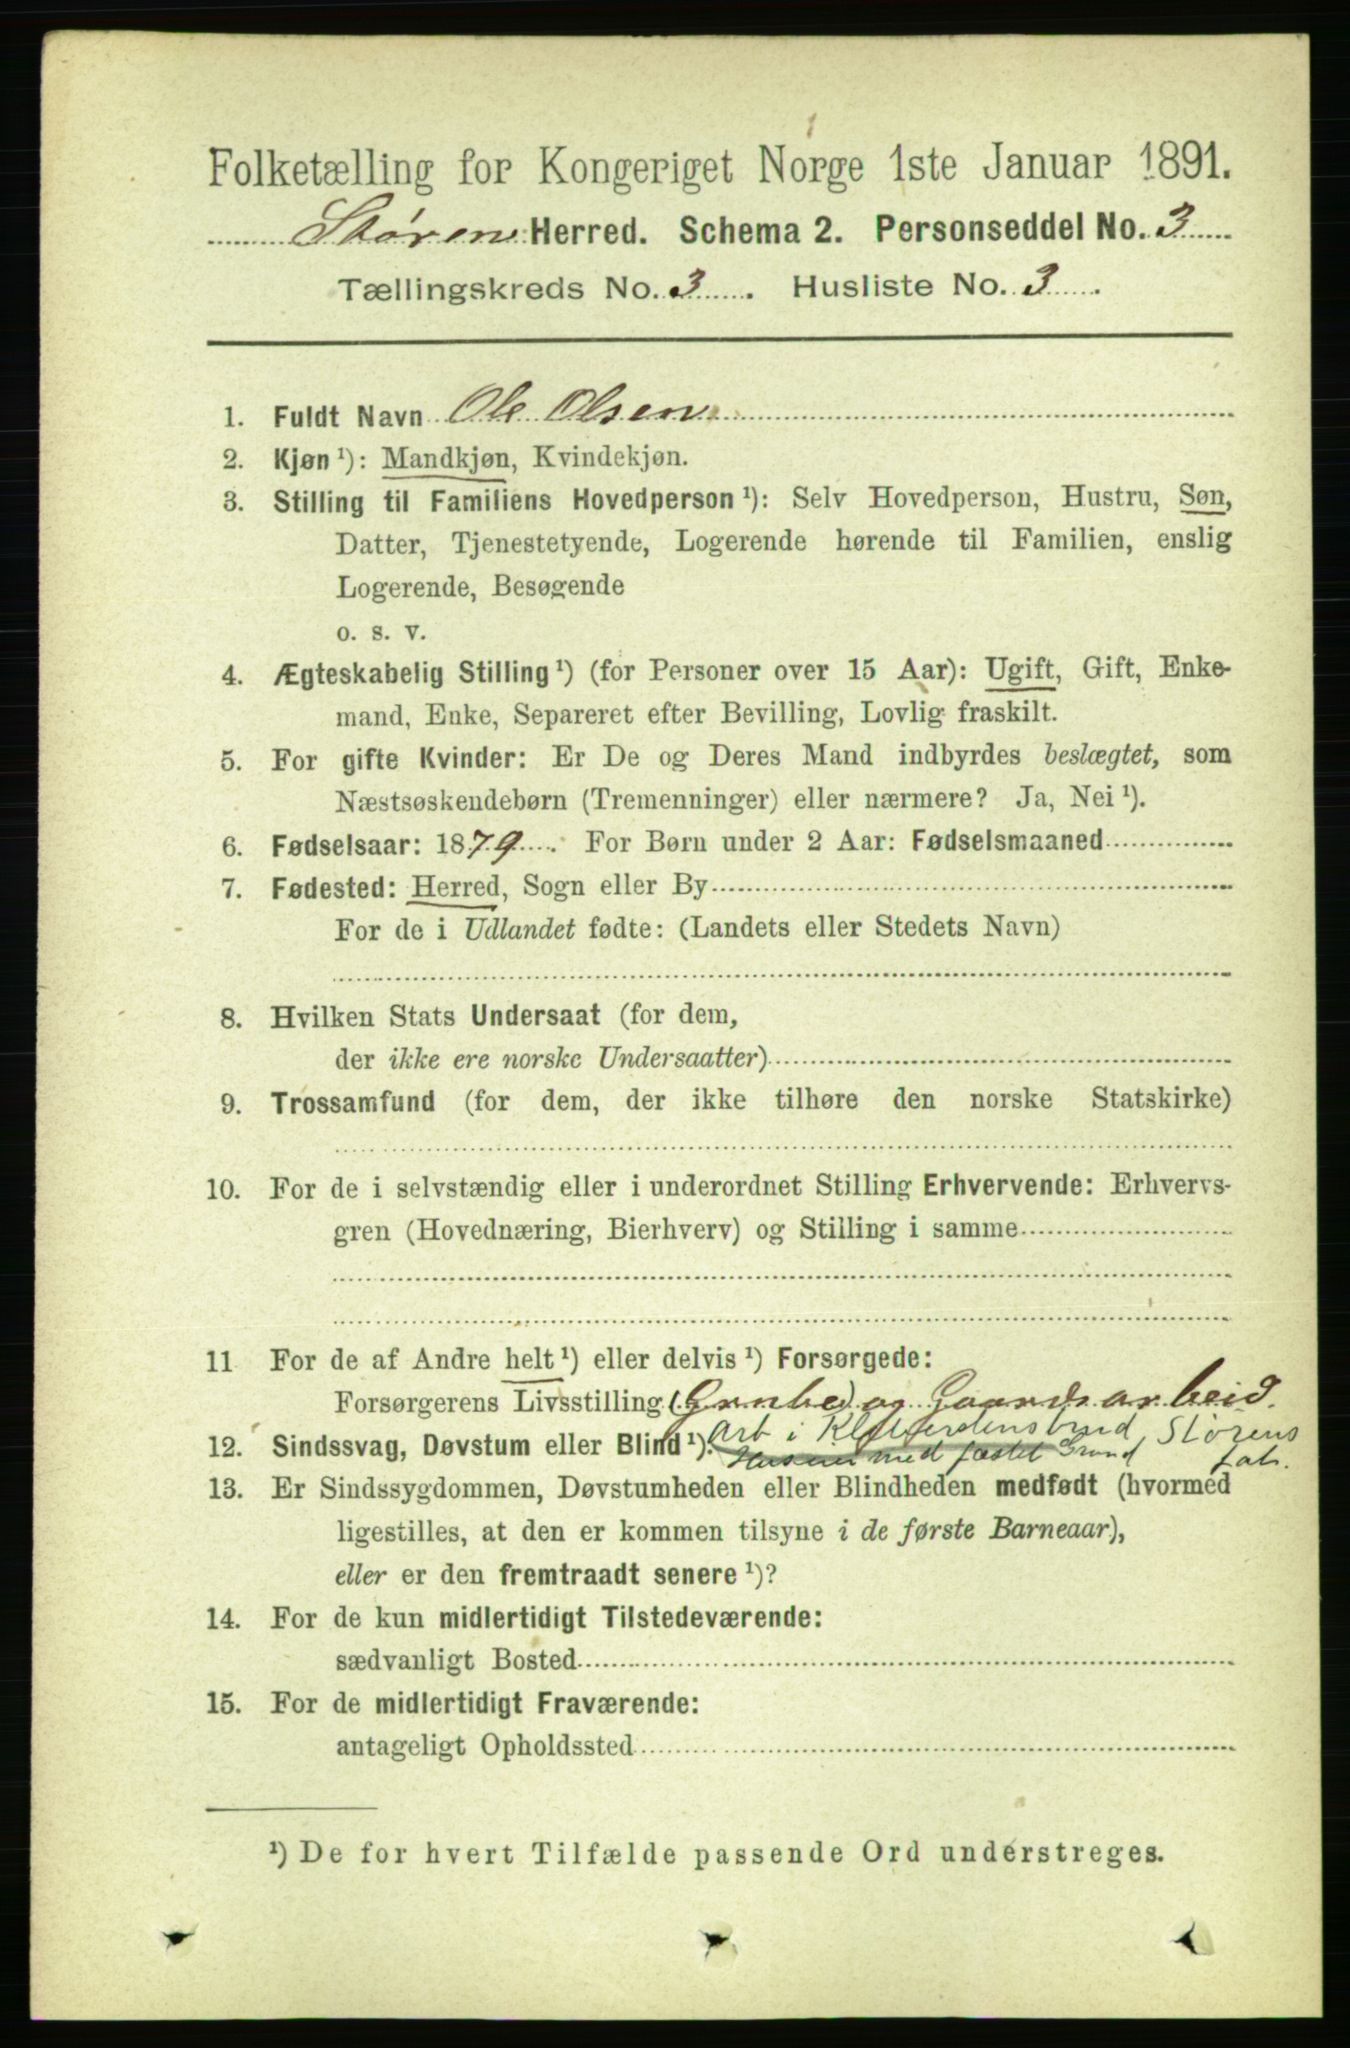 Folketælling for Kongeriget Norge 1ste Januar 1891.
Støren Herred. Schema 2. Personseddel No. 3
Tællingskreds No. 3. Husliste No. 3.
1. Fuldt Navn Ole Olsen
2. Kjøn ¹): Mandkjøn, Kvindekjøn.
3. Stilling til Familiens Hovedperson ¹): Selv Hovedperson, Hustru, Søn,
Datter, Tjenestetyende, Logerende hørende til Familien, enslig
Logerende, Besøgende
o. s. v.
4. Ægteskabelig Stilling ¹) (for Personer over 15 Aar): Ugift, Gift, Enke-
mand, Enke, Separeret efter Bevilling, Lovlig fraskilt.
5. For gifte Kvinder: Er De og Deres Mand indbyrdes beslægtet, som
Næstsøskendebørn (Tremenninger) eller nærmere? Ja, Nei ¹).
6. Fødselsaar: 1879. For Børn under 2 Aar: Fødselsmaaned
7. Fødested: Herred, Sogn eller By
For de i Udlandet fødte: (Landets eller Stedets Navn)
8. Hvilken Stats Undersaat (for dem,
der ikke ere norske Undersaatter)
9. Trossamfund (for dem, der ikke tilhøre den norske Statskirke)
10. For de i selvstændig eller i underordnet Stilling Erhvervende: Erhvervs-
gren (Hovednæring, Bierhverv) og Stilling i samme
11 For de af Andre helt ¹) eller delvis ¹) Forsørgede:
Forsørgerens Livsstilling (Grube) og Gaardsarbeid.
12. Sindssvag, Døvstum eller Blind ¹). Arb i Størens
Huseier med fæstet Grund
13. Er Sindssygdommen, Døvstumheden eller Blindheden medfødt (hvormed
ligestilles, at den er kommen tilsyne i de første Barneaar),
eller er den fremtraadt senere ¹)?
14. For de kun midlertidigt Tilstedeværende:
sædvanligt Bosted
15. For de midlertidigt Fraværende:
antageligt Opholdssted
¹) De for hvert Tilfælde passende Ord understreges.